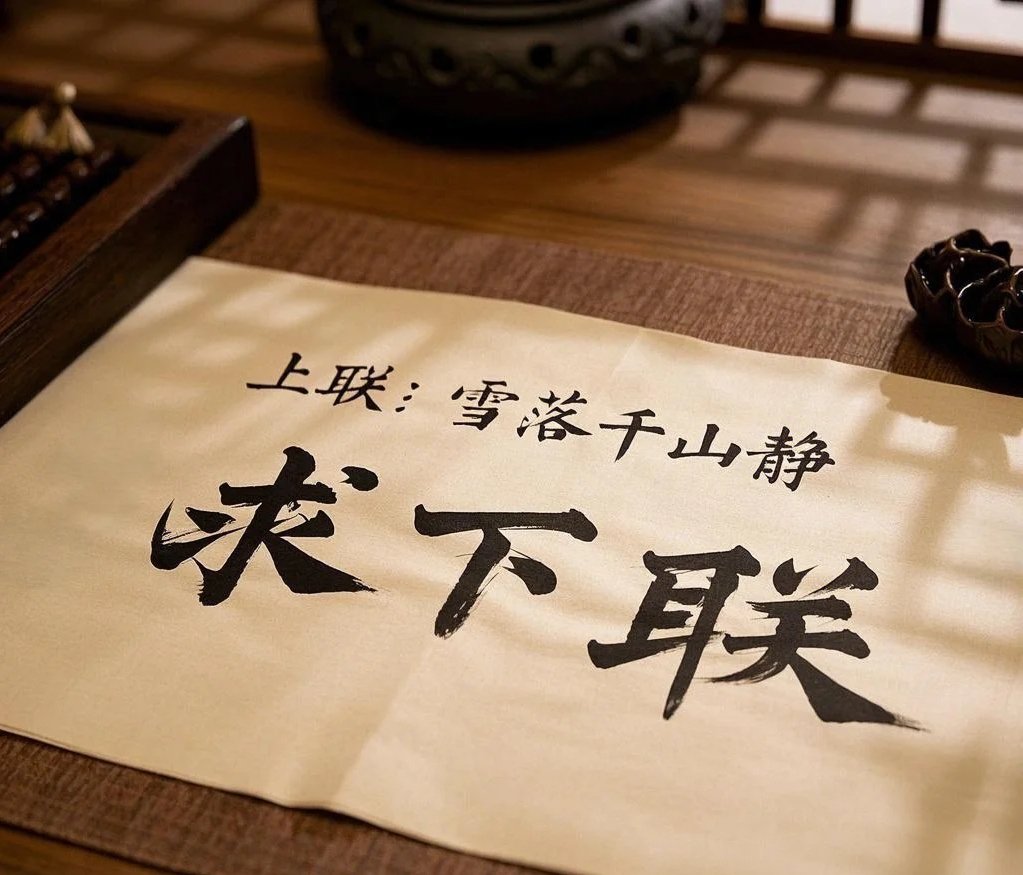 上联：雪落千山静
求下联